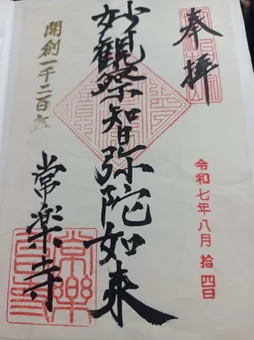 奉拝
令和七年八月拾四日
妙観察智弥陀如来
開創一千二百年
常楽寺
常樂寺